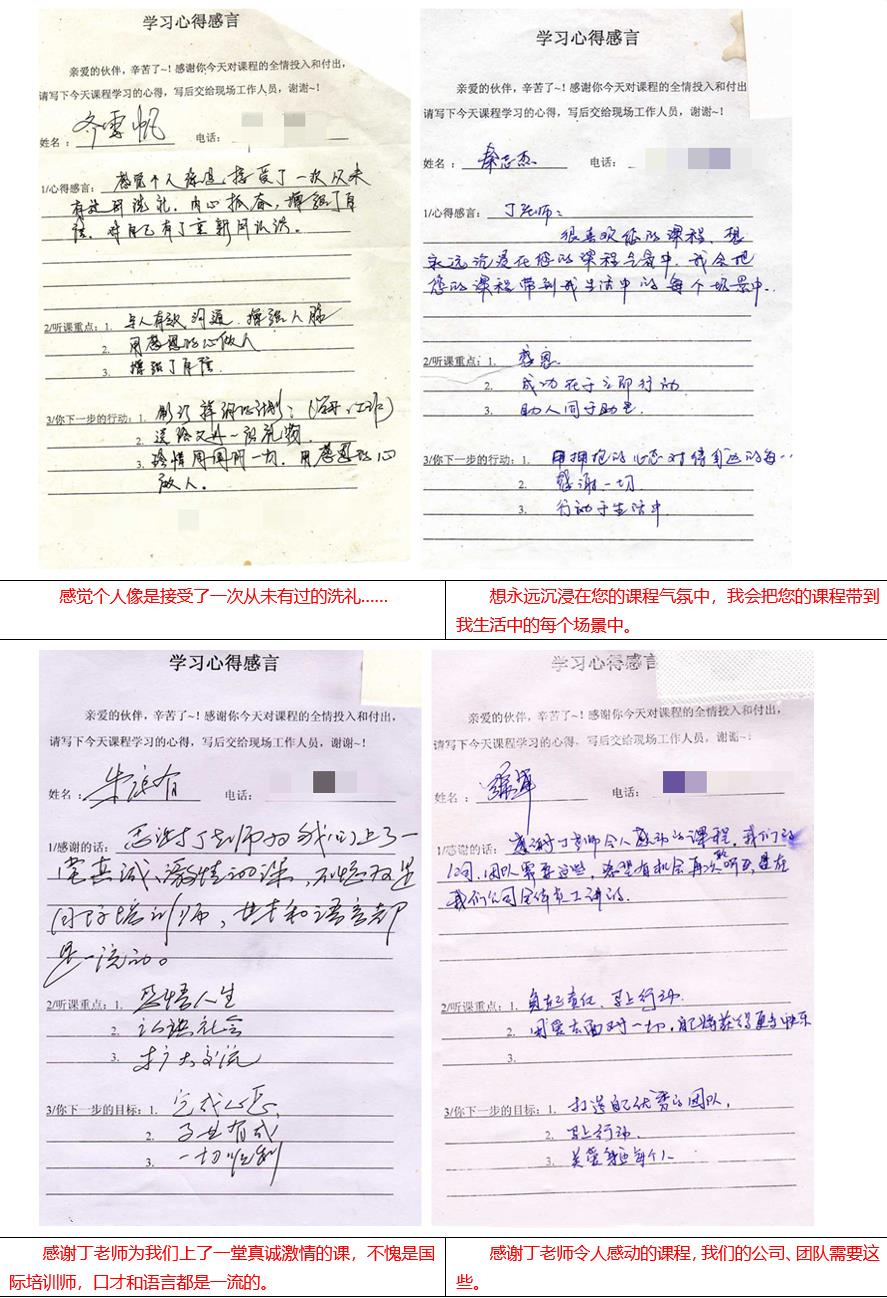 学习心得感言
亲爱的伙伴，辛苦了~！感谢你今天对课程的全情投入和付出，
请写下今天课程学习的心得，写后交给现场工作人员，谢谢~！
姓名：齐雪帆 电话：
1/心得感言：感觉个人像是接受了一次从未
有过的洗礼，内心振奋，增强了自
信，对自己有了重新的认识。
2/听课重点：1. 与人有效沟通，增强人脉
2. 用感恩的心做人
3. 增强了自信
3/你下一步的行动：1. 制订详细的计划：
2. 送给父母一份礼物
3. 珍惜周围的一切，用感恩的心
做人。
学习心得感言
亲爱的伙伴，辛苦了~！感谢你今天对课程的全情投入和付出，
请写下今天课程学习的心得，写后交给现场工作人员，谢谢~！
姓名：秦志杰 电话：
1/心得感言：丁老师：
很喜欢您的课程，想
永远沉浸在您的课程气氛中，我会把
您的课程带到我生活中的每个场景中..
2/听课重点：1. 感恩
2. 成功在于立即行动
3. 助人同于助己
3/你下一步的行动：1. 用拥抱的心态对待身边的每..
2. 感谢一切
3. 行动于生活中
感觉个人像是接受了一次从未有过的洗礼......
想永远沉浸在您的课程气氛中，我会把您的课程带到
我生活中的每个场景中。
学习心得感言
亲爱的伙伴，辛苦了~！感谢你今天对课程的全情投入和付出，
请写下今天课程学习的心得，写后交给现场工作人员，谢谢~！
姓名：朱 电话：
1/感谢的话：感谢丁老师为我们上了一
堂真诚、激情的课，不愧是
国际培训师，口才和语言都
是一流的。
2/听课重点：1. 感悟人生
2. 认识社会
3. 扩大交流
3/你下一步的目标：1. 完成心愿
2. 事业有成
3. 一切顺利
学习心得感言
亲爱的伙伴，辛苦了~！感谢你今天对课程的全情投入和付出，
请写下今天课程学习的心得，写后交给现场工作人员，谢谢~！
姓名： 电话：
1/感谢的话：感谢丁老师令人感动的课程，我们的
公司、团队需要这些，希望有机会再次听到，是在
我们公司全体员工讲的。
2/听课重点：1. 负起责任，马上行动
2. 用爱去面对一切，自己将获得更多快乐
3.
3/你下一步的目标：1. 打造自己优秀的团队，
2. 马上行动，
3. 关爱身边每个人
感谢丁老师为我们上了一堂真诚激情的课，不愧是国
际培训师，口才和语言都是一流的。
感谢丁老师令人感动的课程，我们的公司、团队需要这
些。